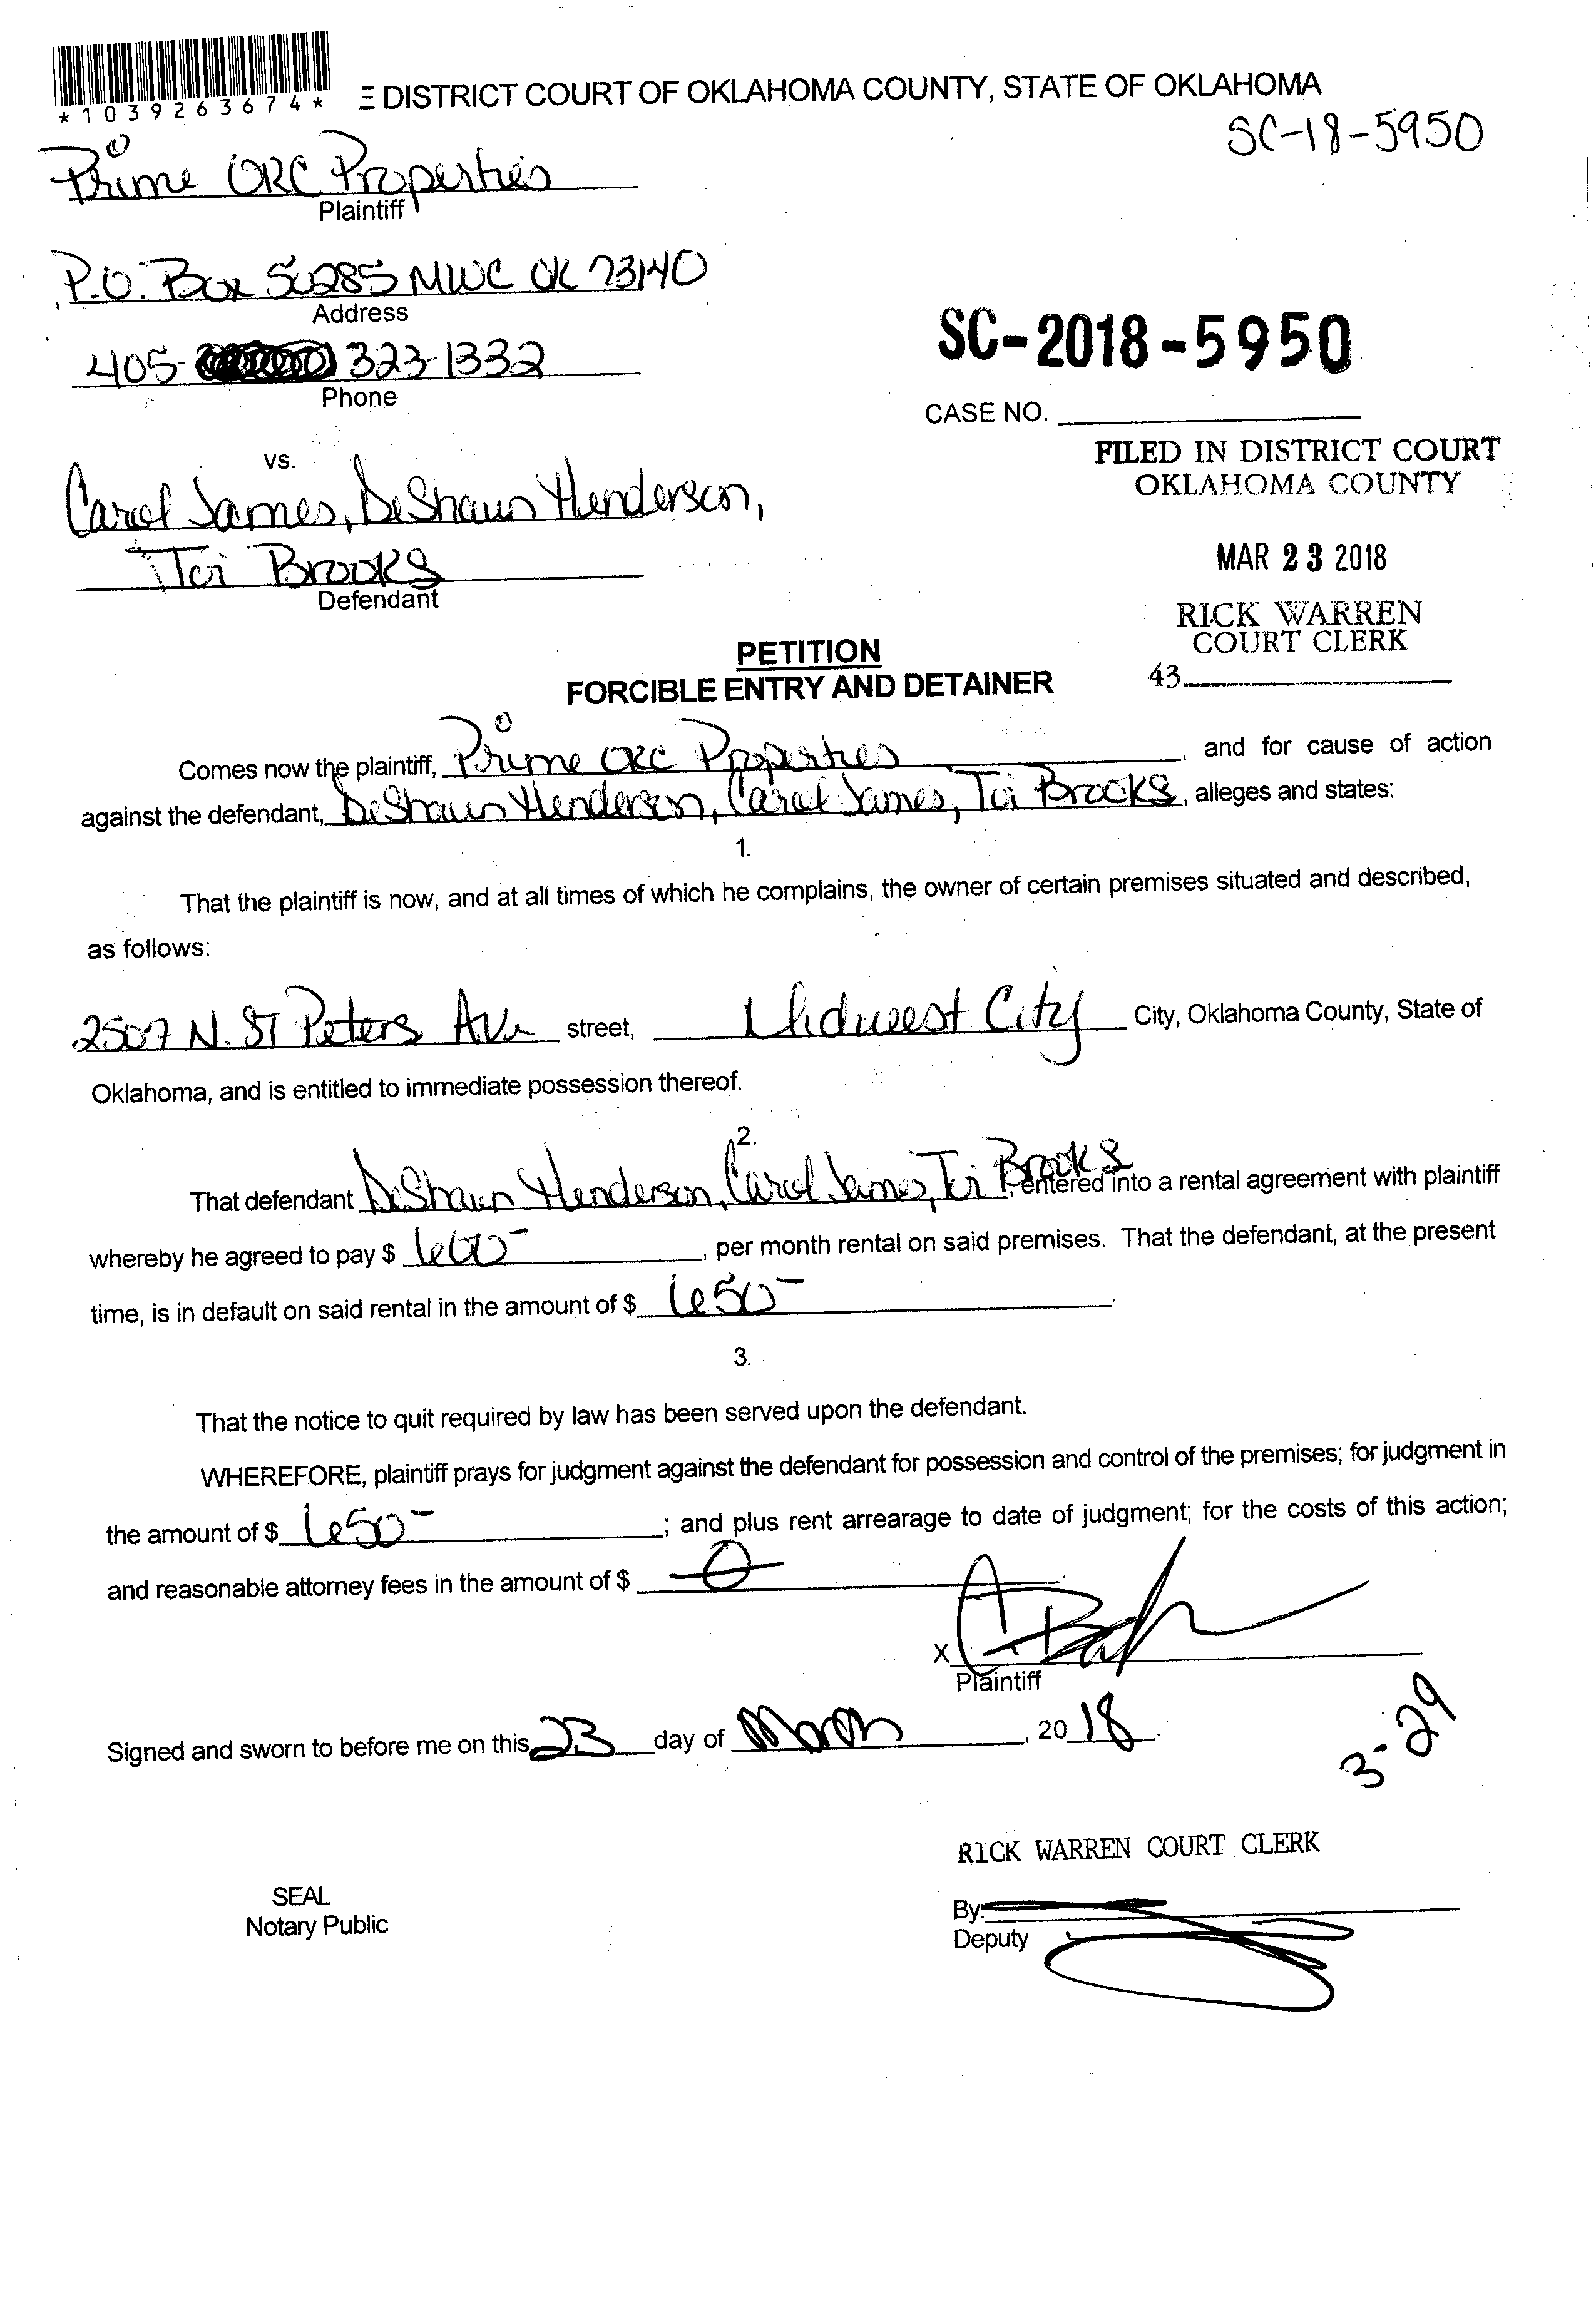 *1039263674*
E DISTRICT COURT OF OKLAHOMA COUNTY, STATE OF OKLAHOMA
SC-18-5950
Prime OKC Properties
Plaintiff
P.O. Box 50285 MWC OK 73140
Address
405- 323-1332
Phone
SC-2018-5950
CASE NO.
FILED IN DISTRICT COURT
OKLAHOMA COUNTY
MAR 23 2018
RICK WARREN
COURT CLERK
43
vs.
Carol James, DeShaun Henderson,
Tei Brooks
Defendant
PETITION
FORCIBLE ENTRY AND DETAINER
Comes now the plaintiff, Prime OKC Properties, and for cause of action
against the defendant, DeShaun Henderson, Carol James, Tei Brooks, alleges and states:
1.
That the plaintiff is now, and at all times of which he complains, the owner of certain premises situated and described,
as follows:
2507 N. ST Peters Ave street, Midwest City City, Oklahoma County, State of
Oklahoma, and is entitled to immediate possession thereof.
2.
That defendant DeShaun Henderson, Carol James, Tei Brooks, entered into a rental agreement with plaintiff
whereby he agreed to pay $ 600-, per month rental on said premises. That the defendant, at the present
time, is in default on said rental in the amount of $ 650-.
3.
That the notice to quit required by law has been served upon the defendant.
WHEREFORE, plaintiff prays for judgment against the defendant for possession and control of the premises; for judgment in
the amount of $ 650-; and plus rent arrearage to date of judgment; for the costs of this action;
and reasonable attorney fees in the amount of $ 0.
X
Plaintiff
Signed and sworn to before me on this 23 day of March, 2018.
3-29
RICK WARREN COURT CLERK
SEAL
Notary Public
By:
Deputy